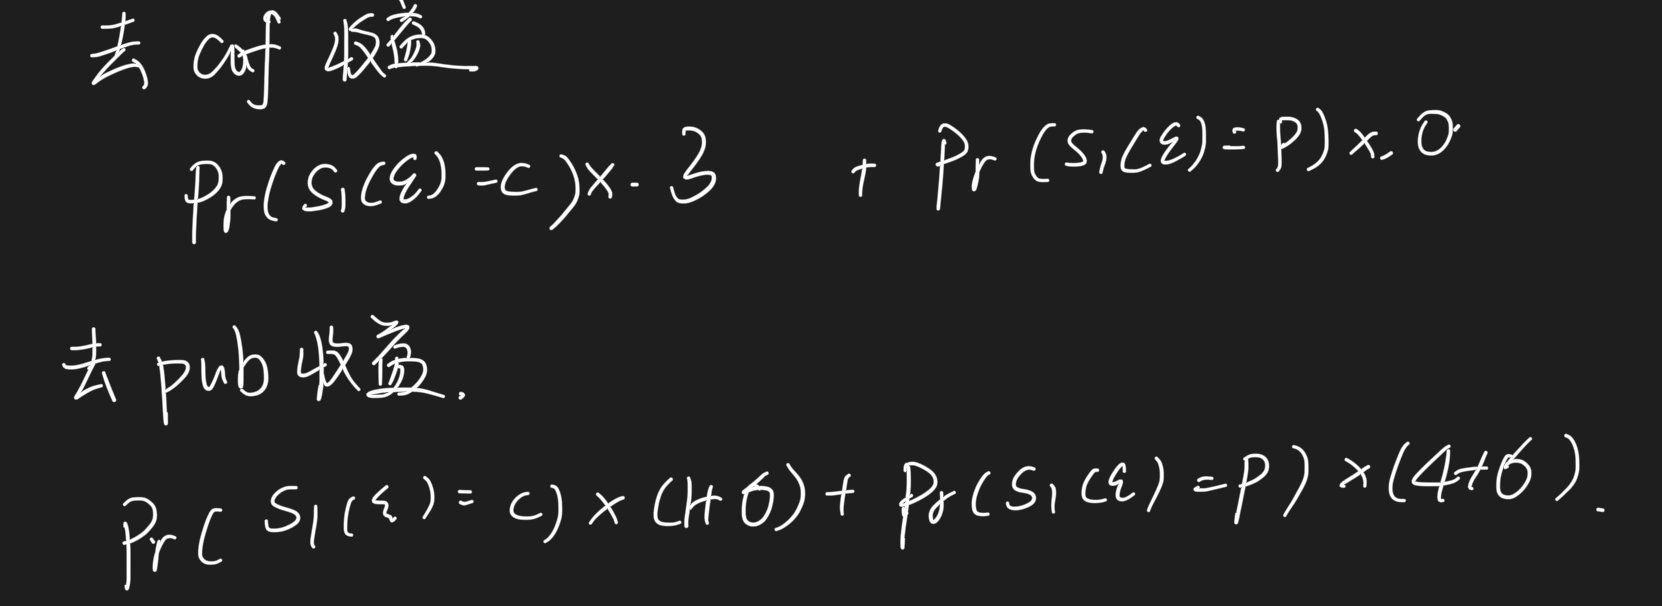 去 caf 收益
Pr(S₁(ε)=c)×. 3 + Pr(S₁(ε)=P)×. 0
去 pub 收益.
Pr(S₁(ε)=c)×(1+δ)+Pr(S₁(ε)=P)×(4+δ).